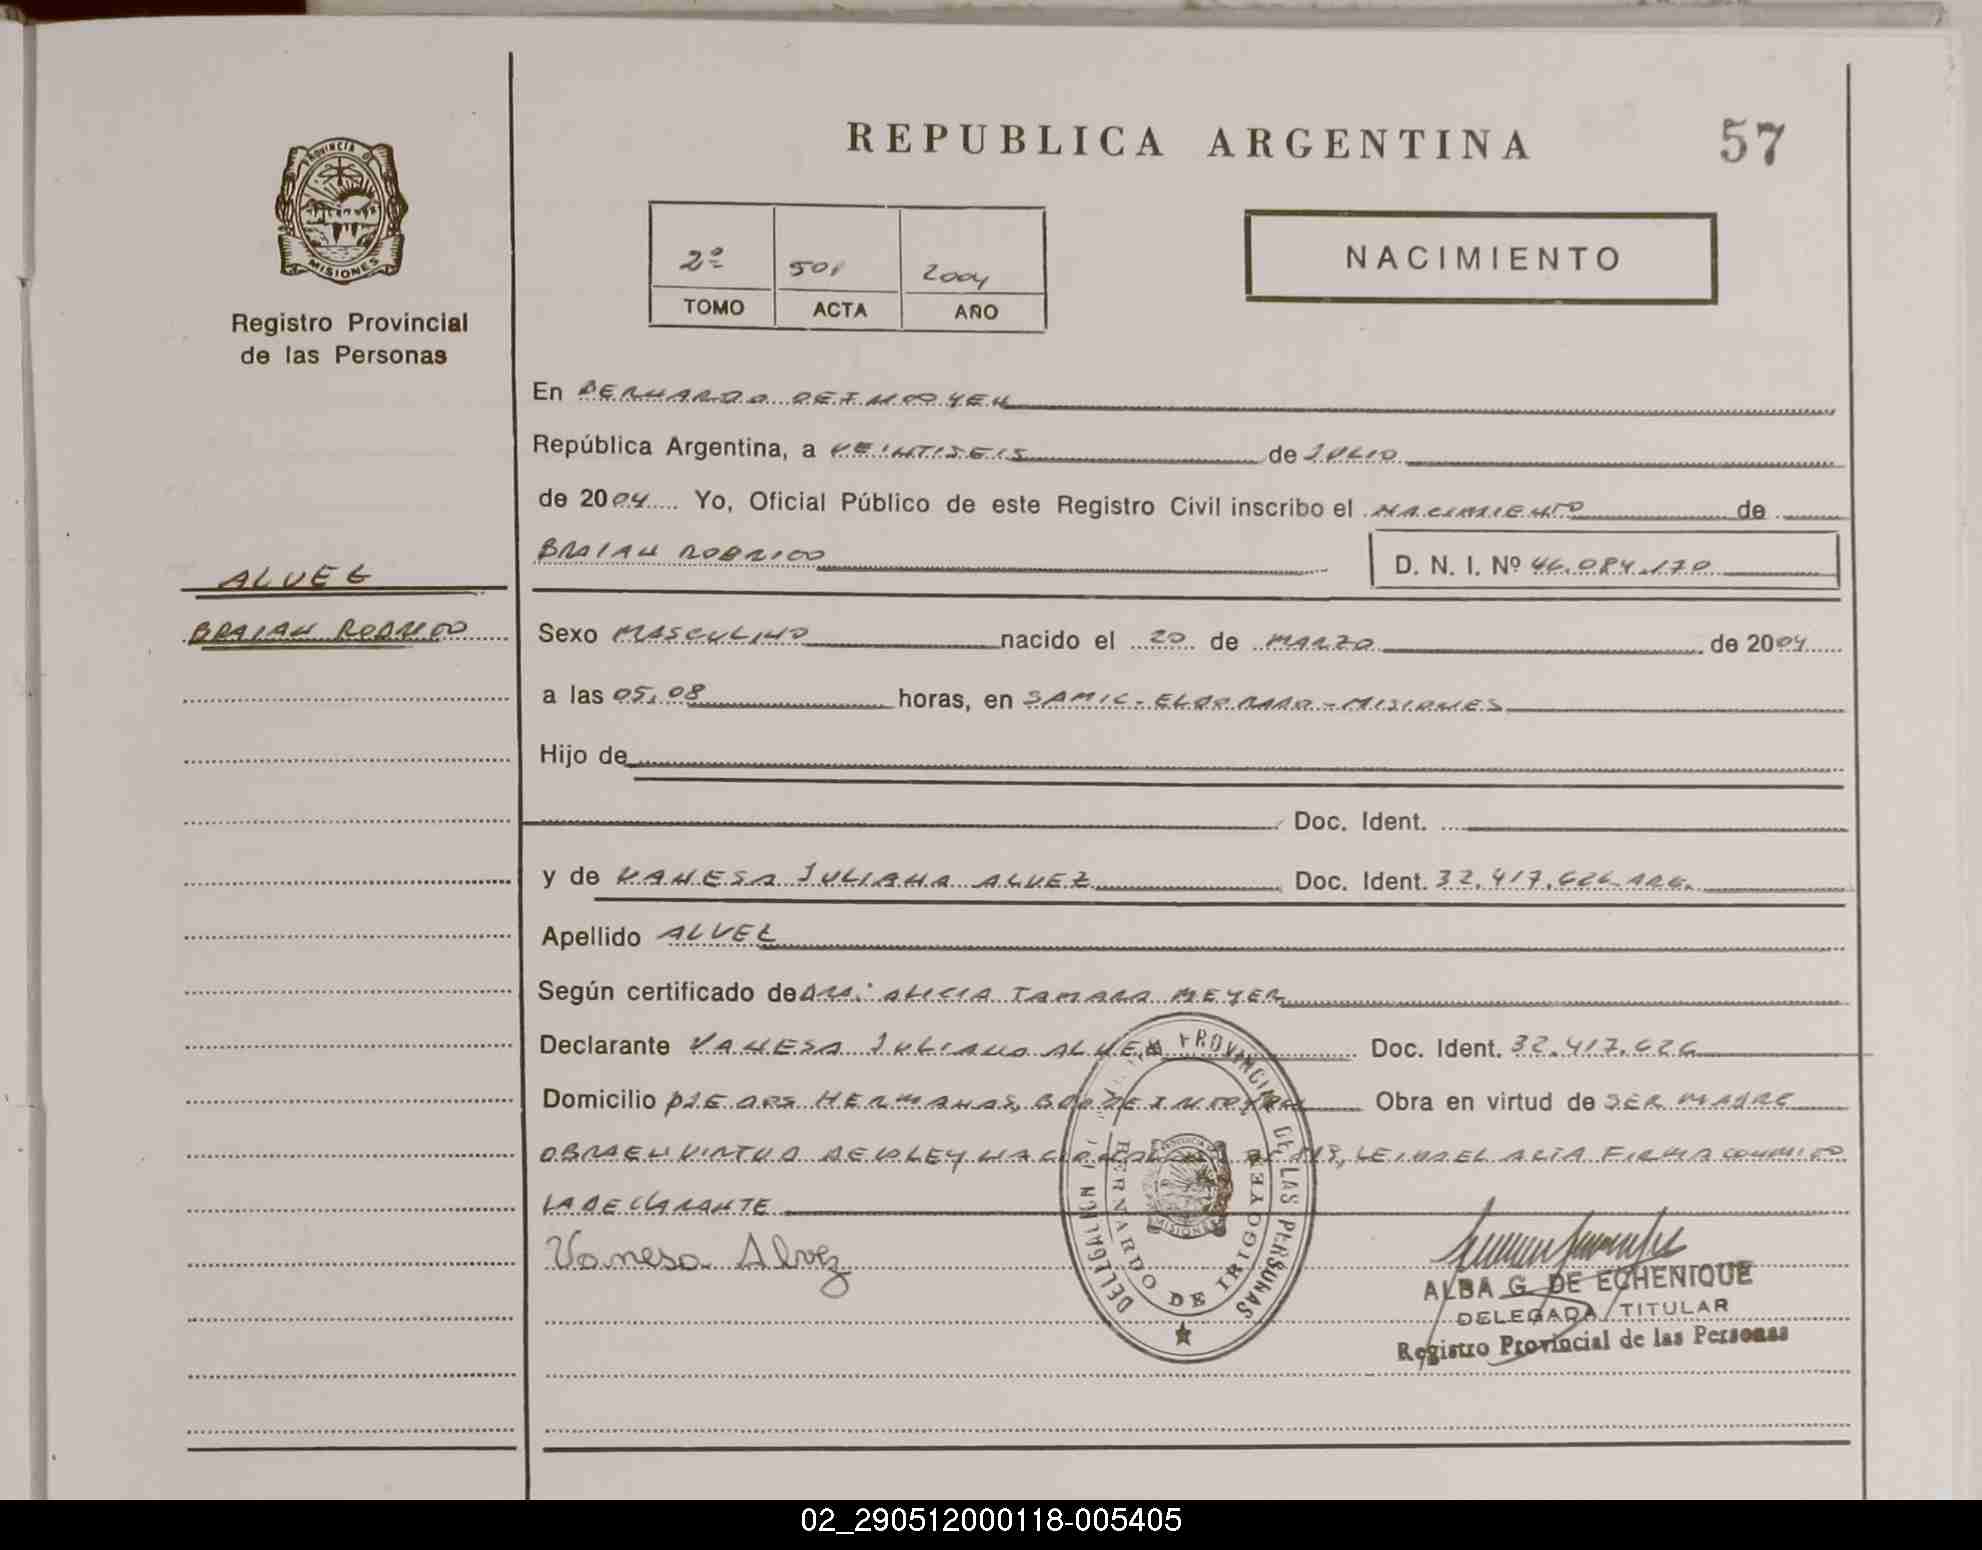 REPUBLICA ARGENTINA
57
PROVINCIA DE
MISIONES
Registro Provincial
de las Personas
2º 501 2004
TOMO ACTA AÑO
NACIMIENTO
En BERNARDO DE IRIGOYEN
República Argentina, a VEINTISEIS de JULIO
de 2004 Yo, Oficial Público de este Registro Civil inscribo el NACIMIENTO de
BRAIAN RODRIGO D. N. I. Nº 46.084.170
ALVEZ
BRAIAN RODRIGO
Sexo MASCULINO nacido el 20 de MARZO de 2004
a las 05,08 horas, en SAMIC - ELDORADO - MISIONES
Hijo de
Doc. Ident.
y de VANESA JULIANA ALVEZ Doc. Ident. 32.417.626 ARG.
Apellido ALVEZ
Según certificado de DRA: ALICIA TAMARA MEYER
Declarante VANESA JULIANA ALVEZ Doc. Ident. 32.417.626
Domicilio HERMANAS, Obra en virtud de SER MADRE
OBRA EN VIRTUD DE LA LEY NACIONAL LEIDA EL ACTA FIRMA CONMIGO
LA DECLARANTE
Vanesa Alvez
DELEGACION PROVINCIAL DE LAS PERSONAS
BERNARDO DE IRIGOYEN
PROVINCIA DE
MISIONES
ALBA G. DE ECHENIQUE
DELEGADA TITULAR
Registro Provincial de las Personas
02_290512000118-005405